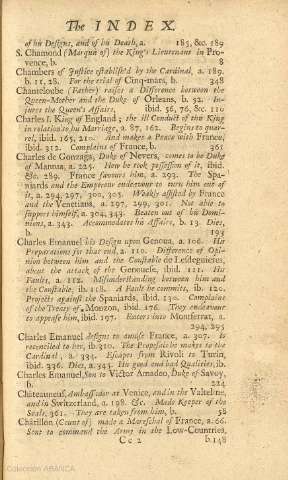 The INDEX.
of his Designs, and of his Death, a. 185, &c. 189
S. Chamond (Marquis of) the King's Lieutenant in Provence, b. 8
Chambers of Justice establish'd by the Cardinal, a. 189.
b. 11, 28. For the trial of Cinq-mars, b. 348
Chanteloube (Father) raises a Difference between the
Queen-Mother and the Duke of Orleans, b. 52. Injures the Queen's Affairs, ibid. 56, 76, &c. 110
Charles I. King of England; the ill Conduct of the King
in relation to his Marriage, a. 87, 162. Begins to quarrel, ibid. 165, 210. And makes a Peace with France,
ibid. 312. Complains of France, b. 361
Charles de Gonzaga, Duke of Nevers, comes to be Duke
of Mantua, a. 224. How he took possession of it, ibid.
&c. 289. France favours him, a. 293. The Spaniards and the Emperour endeavour to turn him out of
it, a. 294, 297, 300, 303. Weakly assisted by France
and the Venetians, a. 297, 299, 301. Not able to
support himself, a. 304, 343. Beaten out of his Dominions, a. 343. Accommodates his Affairs, b. 13. Dies,
b. 193
Charles Emanuel his Design upon Genoua, a. 106. His
Preparations for that end, a. 110. Difference of Opinion between him and the Constable de Lesdeguieres,
about the attack of the Genouese, ibid. 111. His
Faults, a. 112. Misunderstanding between him and
the Constable, ib. 118. A Fault he commits, ib. 120.
Projects against the Spaniards, ibid. 130. Complains
of the Treaty of Monzon, ibid. 176. They endeavour
to appease him, ibid. 197. Enters into Montferrat, a.
294, 295
Charles Emanuel designs to amuse France, a. 307. Is
reconciled to her, ib. 310. The Proposals he makes to the
Cardinal, a. 334. Escapes from Rivoli to Turin,
ibid. 336. Dies, a. 343. His good and bad Qualities, ib.
Charles Emanuel, Son to Victor Amadeo, Duke of Savoy,
b. 224
Châteauneuf, Ambassador at Venice, and in the Valteline,
and in Switzerland, a. 198. &c. Made Keeper of the
Seals, 361. They are taken from him, b. 58
Châtillon (Count of) made a Mareschal of France, a. 66.
Sent to command the Army in the Low-Countries,
Cc 2 b. 148
Colección ABANCA